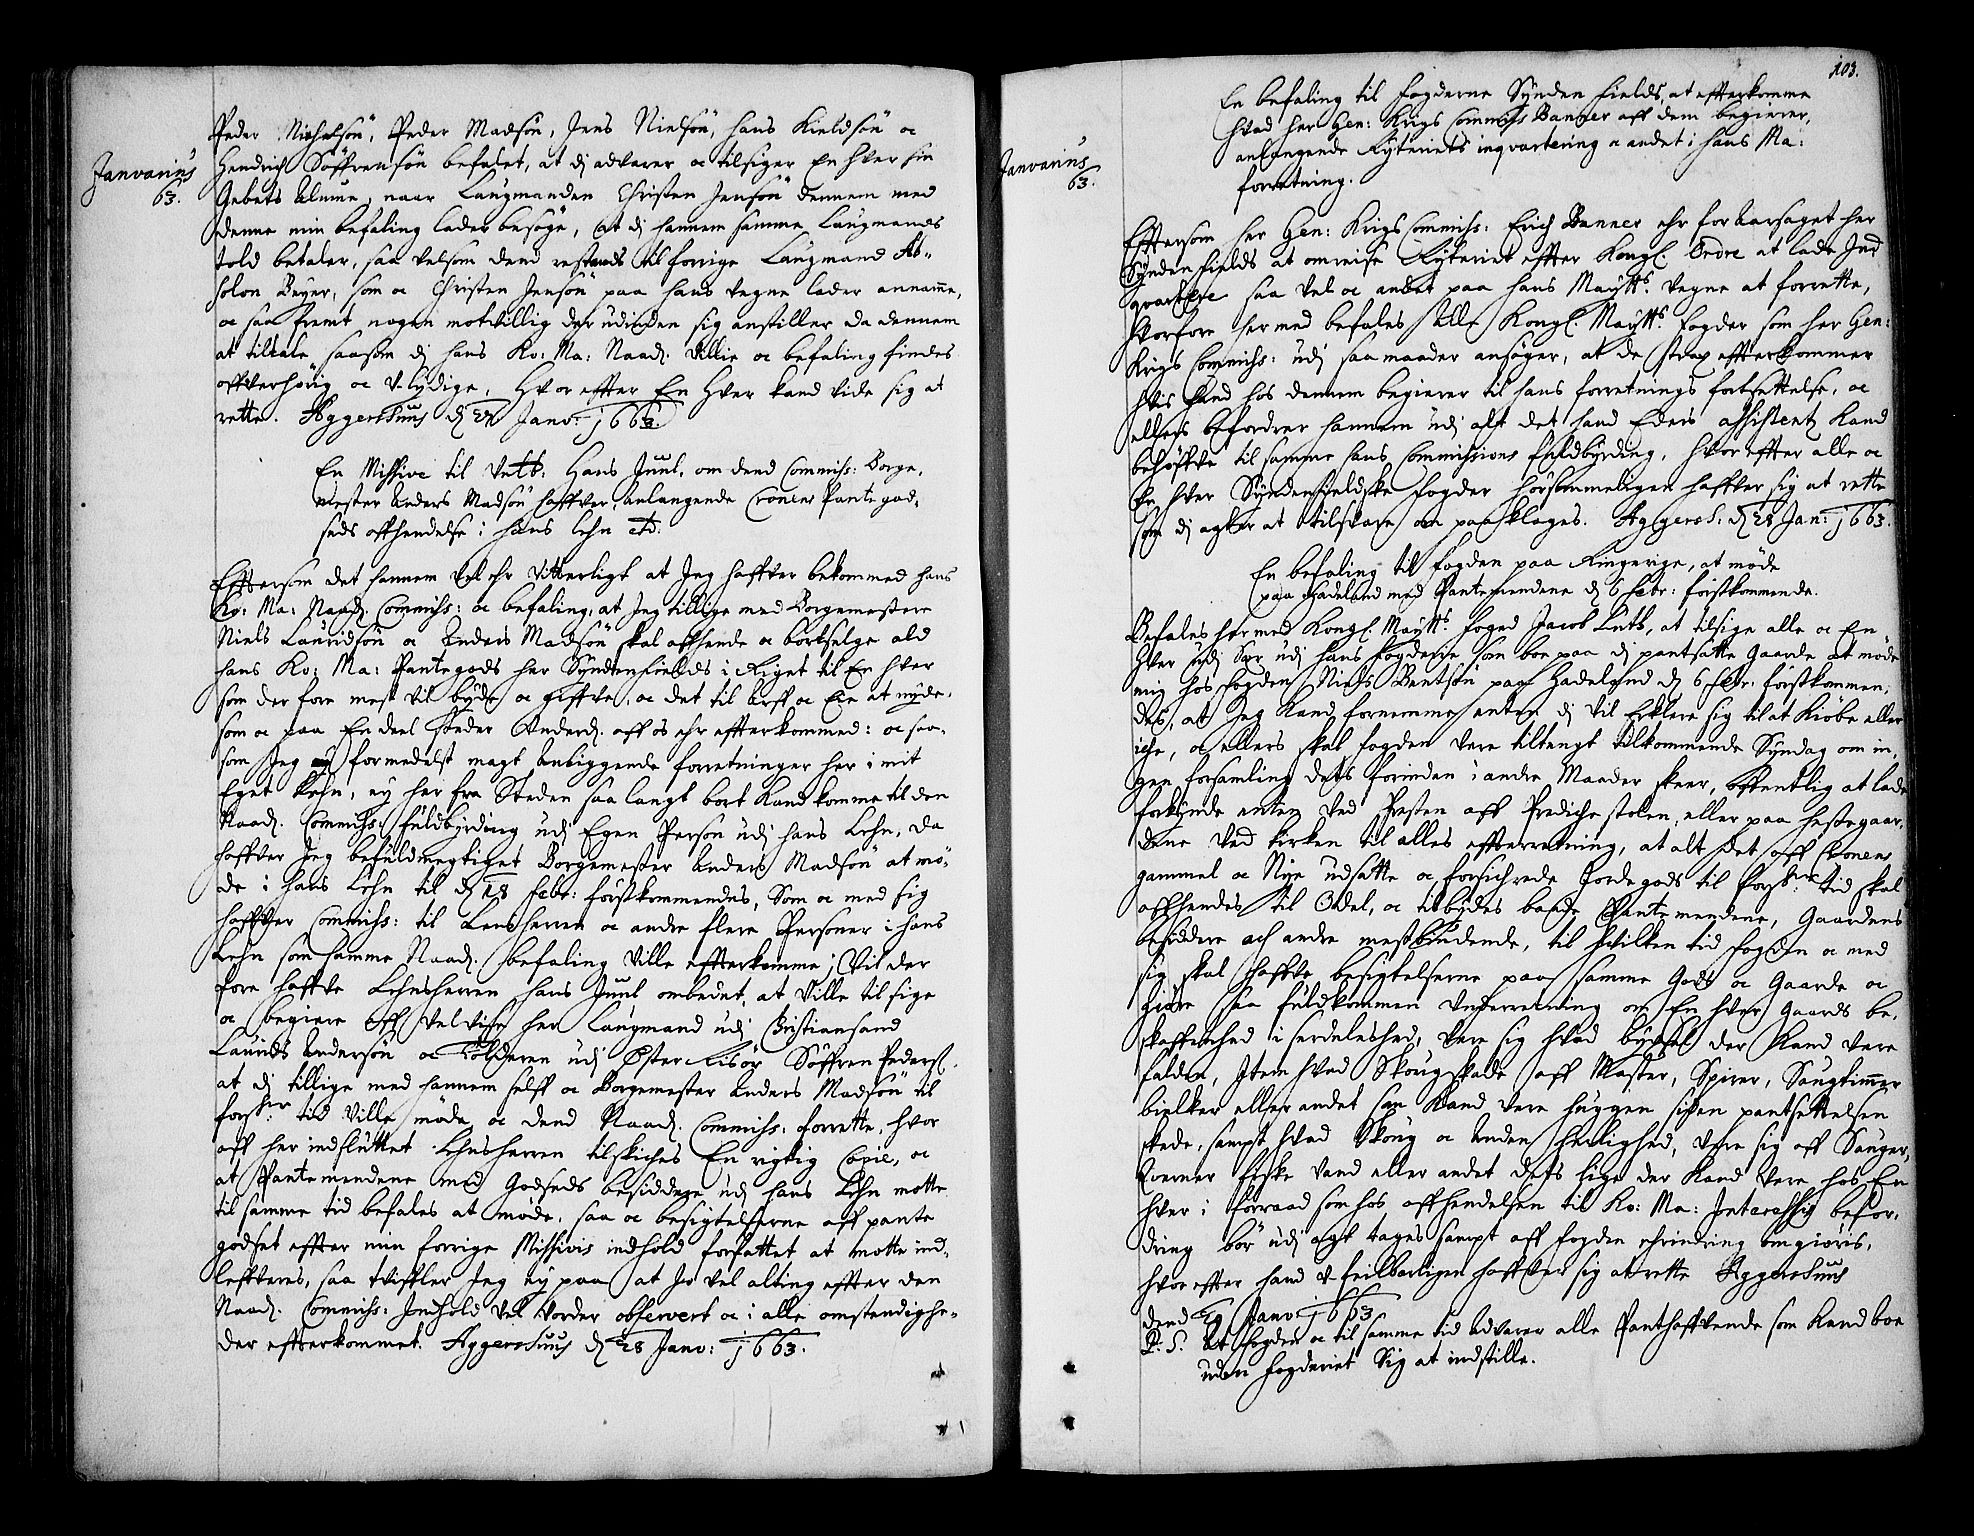 Januarius
63.
Peder Michelsön, Peder Madsön, Jens Nielsön, Hans Kieldsön oc
Hendrich Söffrensön befalet, at di advarer oc tilsiger En hver sin
Gebets Almue, naar Laugmanden Christen Jensön dennem med
denne min befaling lader besöge, at di hannem samme Laugmands
told betaler, saa velsom dend restends til forrige Laugmand Ab-
solon Beyer, som oc Christen Jensön paa hans vegne lader annamme,
oc saa fremt nogen motvillig der udinden sig anstiller da dennem
at tiltale saasom di hans Ko: Ma: Naad. Villie oc befaling findes
offverhörig oc V-lydige, Hvor effter En Hver kand vide sig at
rette. Aggershuus d Janv: 1663.
En Missive til Velb: Hans Juul, om dend Commiss: Borge-
mester Anders Madsön haffver, anlangende Cronens Pante god-
seds affhendelse i hans Lehn etc.
Effterson det hannem vel ehr vitterligt at Jeg haffver bekommed hans
Ko: Ma: Naad. Commiss: oc befaling, at Jeg tillige med Borgemestere
Niels Lauridsön oc Anders Madsön skal affhende oc bortselge ald
hans Ko: Ma: Pantegods her Syndenfields i Riget til En hver
som der fore mest vil byde oc giffve, oc det til Arff oc Eie at nyde,
som oc paa En deel steder Underd. aff os ehr effterkommed: oc saa-
som Jeg formedelst magt anliggende forretninger her i mit
Eget Lehn, ey her fra Steden saa langt bort kand komme til den
Naad. Commiss: fuldbyrding udj Egen Person udj hans Lehn, da
haffver Jeg befuldmegtiget Borgemester Anders Madsön at mö-
de i hans Lehn til d 18 Febr: förstkommendes, Som oc med sig
haffver Commiss: til Lensherren oc andre flere Personer i hans
Lehn som samme Naad. befaling ville effterkomme; Vil der
fore haffve Lehnsherren Hans Juul ombedet, at ville til sige
oc begiere Eff Velvise her Laugmand udj Christiansand
Laurids Andersön oc Tolderen udj Öster Riisör Söffren Peders.
at di tillige med hannem selff oc Borgemester Anders Madsön til
forsk: tid ville möde oc dend Naad. Commiss: forrette, hvor
aff her indfluttet Lehnsherren tilskiches En rigtig Copie, oc
at Pantemendene med Godseds besiddere udj hans Lehn motte
til samme tid befales at möde, saa oc besigtelserne aff pante
godset effter min forrige Missivis indhold forfattet at motte ind-
leffveres, saa tviffler Jeg ey paa at Jo vel alting effter den
Naad. Commiss: Indhold vel vorder observert oc i alle omstendighe-
der effterkommet. Aggershuus d 28 Janv: 1663.
103.
Januarius
63.
En befaling til fogderne Synden fields, at effterkomme
hvad her Gen: Krigs Commiss Banner aff dem begierer,
anlangende Rytteriets inqvartering oc andet i hans Ma:
forretning.
Effterson her Gen: Krigs Commiss: Erich Banner ehr foraarsaget her
Synden fields at omreise Rytteriet effter Kongl. Ordre at lade Ind
qvartere saa vel oc andet paa hans Maytts. vegne at forrette,
Hvorfore her med befales alle Kongl. Maytts. fogder som her Gen:
Krigs Commiss: udj saa maader ansöger, at de strax effterkommer
hvis hand hos dennem begierer til hans forretnings fortsettelse, oc
ellers befordrer hannem udj alt det hand Eders assistentz kand
behöffve til samme hans Commissions fuldbyrding, hvor effter alle oc
En hver Syndenfieldske fogder hörsommeligen haffver sig at rette
som di agter at tilsvare om paaklages. Aggersh. d 28 Jan: 1663.
En befaling til fogden paa Ringerige, at möde
paa Hadeland med Pantemendene d 6 Febr: förstkommende.
Befales her med Kongl. Maytts. foged Jacob Luth, at tilsige alle oc En
hver udj Sær udj hans fogderie som boe paa di pantsatte gaarde at möde
mig hos fogden Niels Bentsön paa Hadeland d 6 Febr: förstkommen-
des, at Jeg kand fornemme enten di vil Erklere sig til at Kiöbe eller
iche, oc ellers skal fogden vere tiltengt tilkommende Syndag om in-
gen forsamling dets forinden i andre Maader skeer, offentlig at lade
forkynde enten ved Presten aff Prediche stolen, eller paa hestegaar-
dene ved kirken til alles effterretning, at alt det aff Cronens
gammel oc Nye udsatte oc forsichrede Jordegods til forsk: tid skal
affhendes til Odel, oc tilbydes baade Pantemendene, Gaardens
besiddere och andre mestbiudende, til hvilken tid fogden oc med
sig skal haffve besigtelserne paa samme Gods oc Gaarde oc
giöre saa fuldkommen Underretning om En hver Gaards be-
skaffenhed i serdeleshed, vere sig hvad bygsel der kand vere
falden, Item hvad Skougskade aff Master, Spirer, Saugtimmer
bielker eller andet som kand vere huggen siden pantsettelsen
skede, sampt hvad Skoug oc anden herlighed, vere sig aff Sauger,
Qverner fiske vand eller andet des lige der kand vere hos En
hver i forraad som hos affhendelsen til Ko: Ma: Interesse befor-
dring bör udj agt tages sampt aff fogden ehrindring om giöris,
hvor effter hand v-feilbarligen haffver sig at rette Aggershuus
dend Janv: 1663
P. S. At fogden oc til samme tid advarer alle Panthaffvende som kand boe
uden fogderiet Sig at indstille.